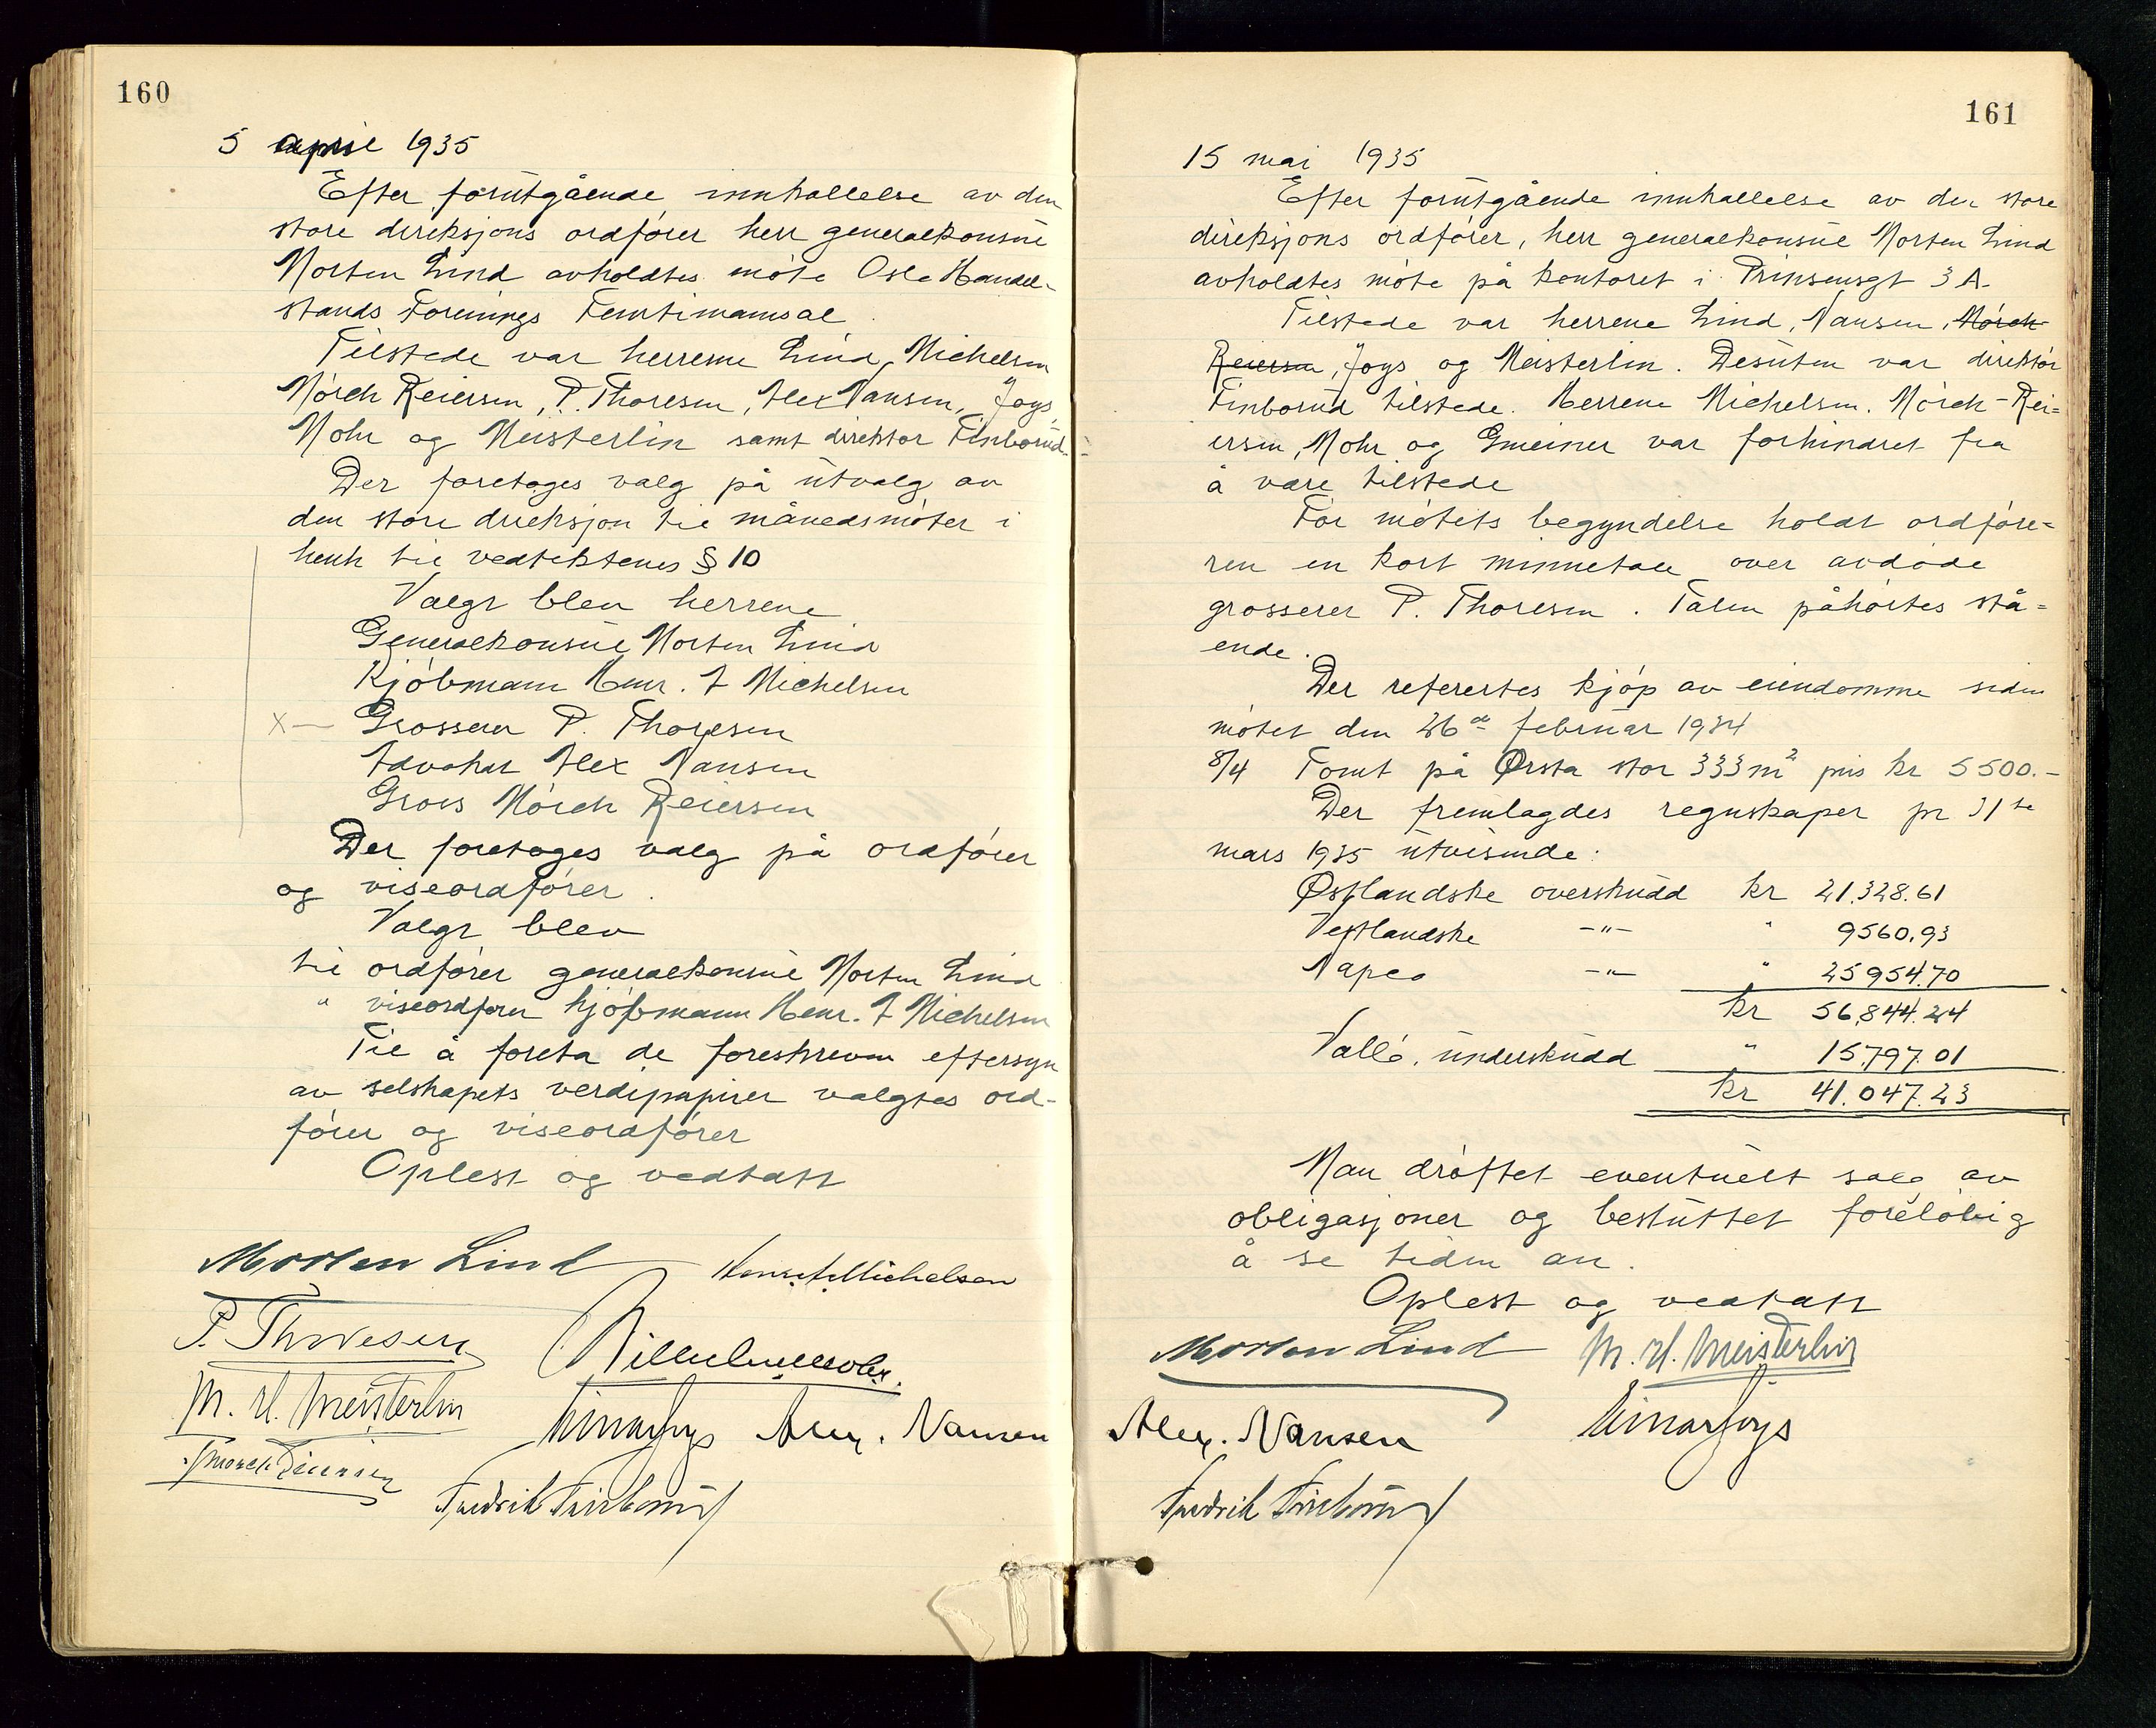 160
5 april 1935
Efter forutgående innkallelse av den
store direksjons ordfører herr generalkonsul
Morten Lind avholdtes møte Oslo Handel-
stands Forenings Femtimannsal.
Tilstede var herrene Lind, Michelsen
Mørch Reiersen, P. Thoresen, Alex Nansen, Joys,
Mohr og Meisterlin samt direktør Finborud.
Der foretoges valg på utvalg av
den store direksjon til månedsmøter i
henh til vedtektenes § 10
Valgt blev herrene
Generalkonsul Morten Lind
Kjøbmann Henr. A Michelsen
x — Grosserer P. Thoresen
Advokat Alex Nansen
Gross Mørch Reiersen
Der foretoges valg på ordfører
og viseordfører.
Valgt blev
til ordfører generalkonsul Morten Lind
" viseordfører kjøbmann Henr. A Michelsen
Til å foreta de foreskrevne eftersyn
av selskapets verdipapirer valgtes ord-
fører og viseordfører
Oplest og vedtatt
Morten Lind Henr. A. Michelsen
P. Thoresen
M. H. Meisterlin Einar Joys Alex. Nansen
Mørch Reiersen
Fredrik Finborud
161
15 mai 1935
Efter forutgående innkallelse av den store
direksjons ordfører, herr generalkonsul Morten Lind
avholdtes møte på kontoret i Prinsensgt 3 A.
Tilstede var herrene Lind, Nansen, Mørch
Reiersen, Joys og Meisterlin. Desuten var direktør
Finborud tilstede. Herrene Michelsen, Mørch-Rei=
ersen, Mohr og Gmeiner var forhindret fra
å være tilstede
Før møtets begyndelse holdt ordføre=
ren en kort minnetale over avdøde
grosserer P. Thoresen. Talen påhørtes stå=
ende.
Der refertes kjøp av eiendomme siden
møtet den 26de februar 1934
8/4 Tomt på Ørsta stor 333 m2 pris kr 5500.-
Der fremlagdes regnskaper pr 31te
mars 1935 utvisende:
Østlandske overskudd kr 21.328.61
Vestlandske -"- " 9560.93
Napco -"- " 25954.70
kr 56.844.24
Vallø, underskudd " 15.797.01
kr 41.047.23
Man drøftet eventuelt salg av
obligasjoner og besluttet foreløbig
å se tiden an.
Oplest og vedtatt
Morten Lind M. H. Meisterlin
Alex. Nansen Einar Joys
Fredrik Finborud